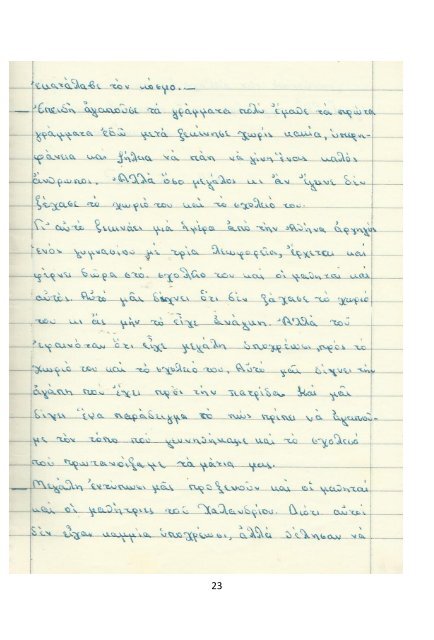 ἐκατάλαβε τὸν κόσμο.—
Ἐπειδὴ ἀγαποῦσε τὰ γράμματα πολὺ ἔμαθε τὰ πρῶτα
γράμματα ἐδῶ μετὰ ξεκίνησε χωρὶς κακία, ὑπερη-
φάνεια και ζήλια νὰ πάη να γίνη ἕνας καλὸς
ἄνθρωπος. Ἀλλὰ ὅσο μεγάλος κι ἂν ἔγινε δὲν
ξέχασε τὸ χωριό του καὶ τὸ σχολειό του.
Γι' αὐτὸ ξεκινάει μιὰ ἡμέρα ἀπὸ τὴν Ἀθήνα ἀρχηγὸς
ἑνὸς γυμνασίου μὲ τρία λεωφορεῖα, ἔρχεται καὶ
φέρνει δῶρα στὸ σχολεῖο του καὶ οἱ μαθηταὶ καὶ
αὐτός. Αὐτὸ μᾶς δείχνει ὅτι δὲν ξέχασε τὸ χωριό
του κι ἂς μὴν τὸ εἶχε ἀνάγκη. Ἀλλὰ τοῦ
ἐφαινόταν ὅτι εἶχε μεγάλη ὑποχρέωσι πρὸς τὸ
χωριό του καὶ τὸ σχολειό του. Αὐτὸ μᾶς δίχνει τὴν
ἀγάπη ποὺ ἔχει πρὸς τὴν πατρίδα. Καὶ μᾶς
δίχνει ἕνα παράδειγμα τὸ πῶς πρέπει νὰ ἀγαποῦ-
με τὸν τόπο ποὺ γεννηθήκαμε καὶ τὸ σχολειὸ
ποὺ πρωτανοίξαμε τὰ μάτια μας.
Μεγάλη ἐντύπωσι μᾶς προξενοῦν καὶ οἱ μαθηταὶ
καὶ οἱ μαθήτριες τοῦ Χαλανδρίου. Διότι αὐτοὶ
δὲν εἶχαν καμμία ὑποχρέωσι, ἀλλὰ θέλησαν νὰ
23